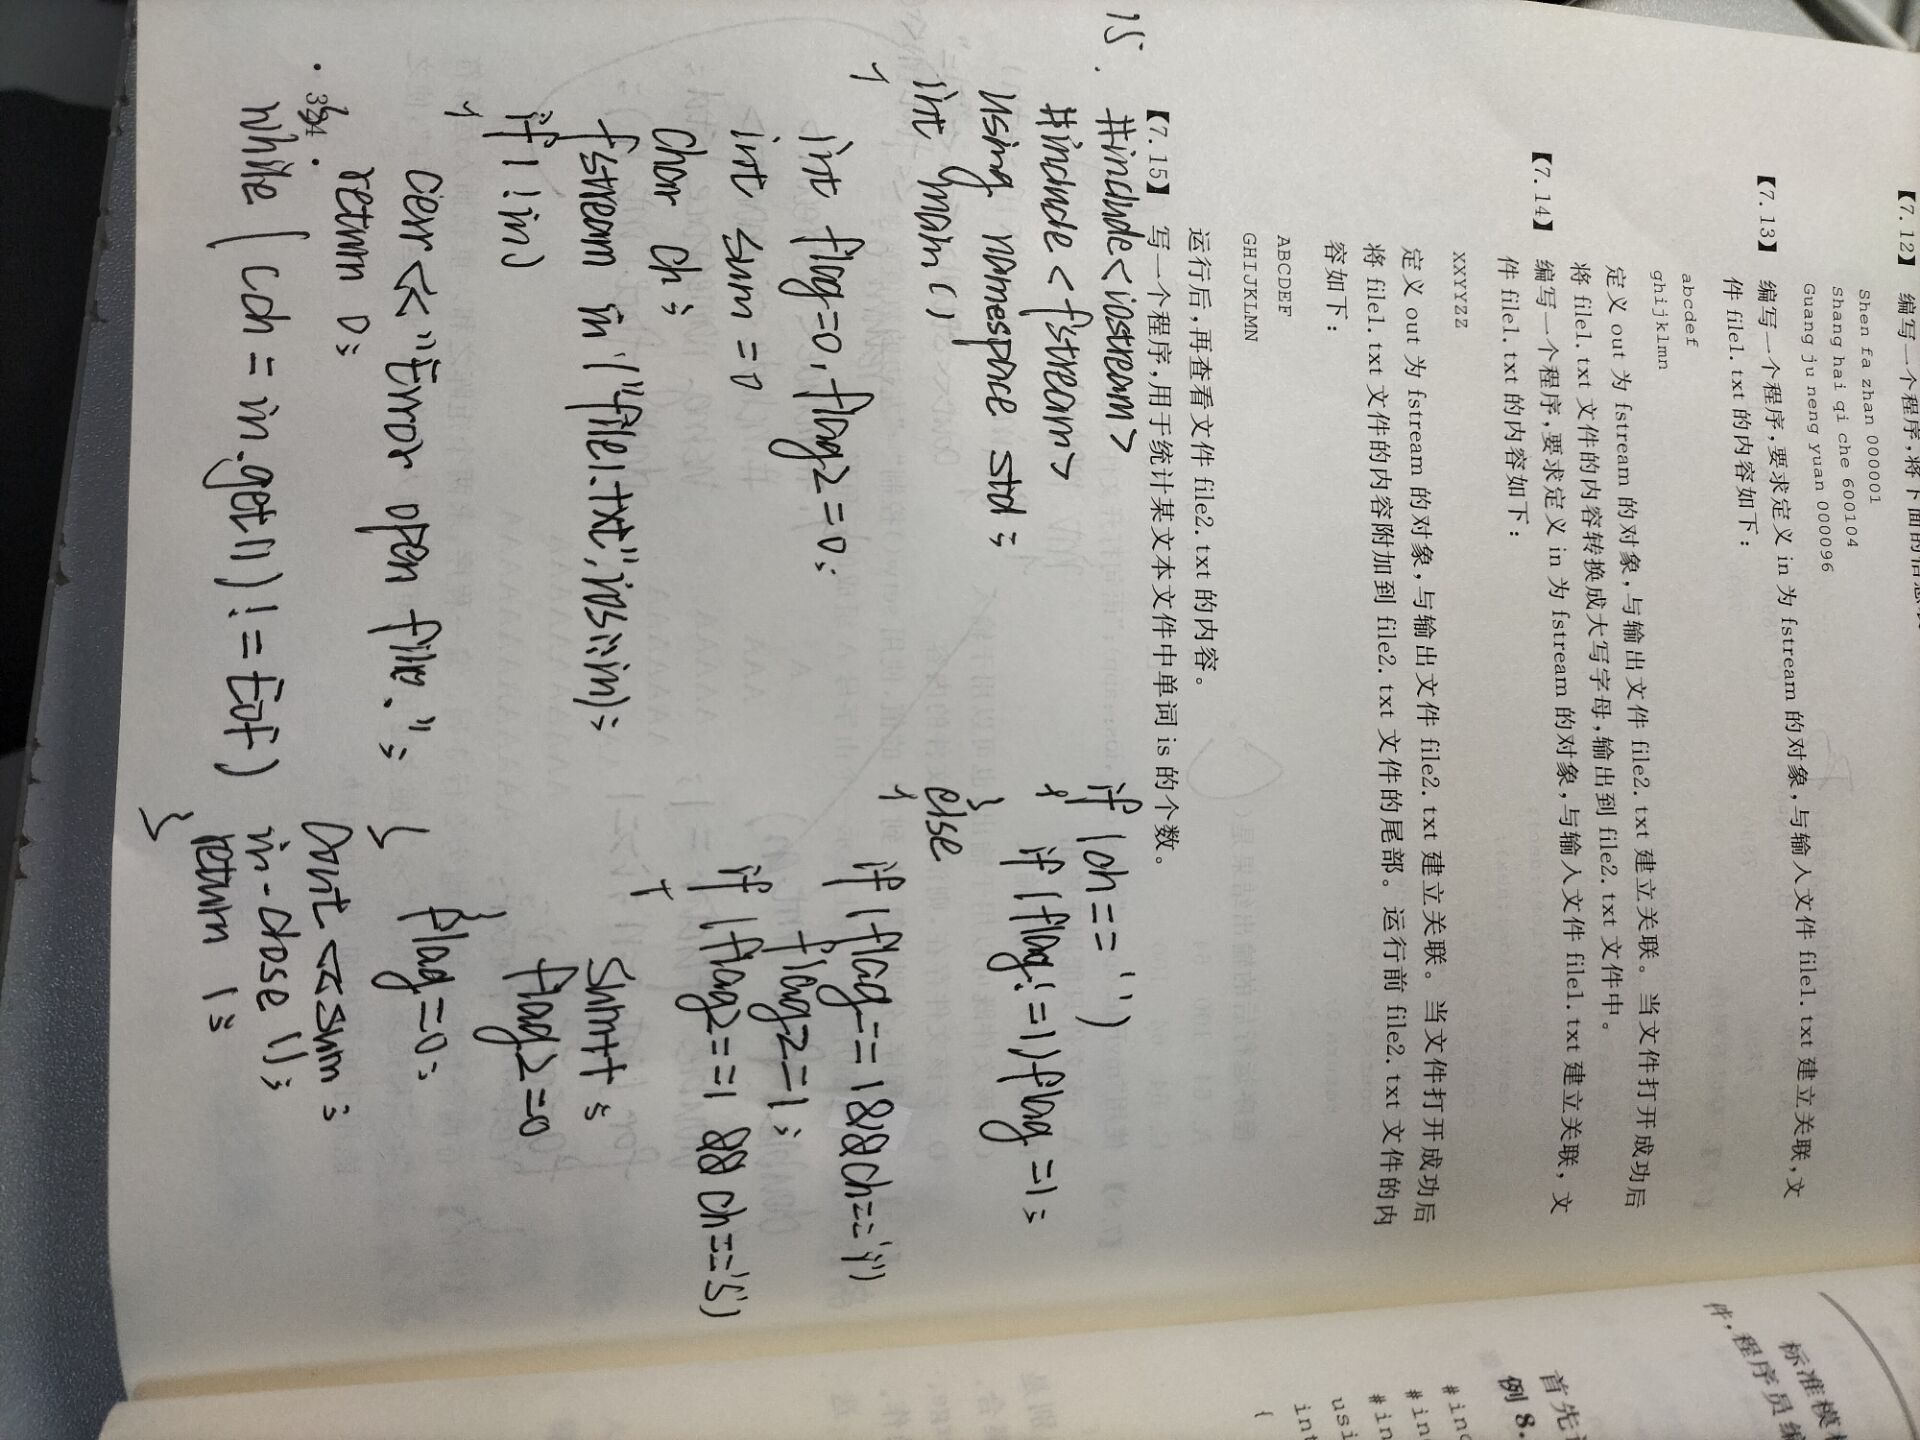 【7.12】 编写一个程序,将下面的信息
Shen fa zhan 000001
Shang hai qi che 600104
Guang ju neng yuan 000096
【7.13】 编写一个程序,要求定义 in 为 fstream 的对象,与输入文件 file1.txt 建立关联,文
件 file1.txt 的内容如下:
abcdef
ghijklmn
定义 out 为 fstream 的对象,与输出文件 file2.txt 建立关联。当文件打开成功后
将 file1.txt 文件的内容转换成大写字母,输出到 file2.txt 文件中。
【7.14】 编写一个程序,要求定义 in 为 fstream 的对象,与输入文件 file1.txt 建立关联,文
件 file1.txt 的内容如下:
XXYYZZ
定义 out 为 fstream 的对象,与输出文件 file2.txt 建立关联。当文件打开成功后
将 file1.txt 文件的内容附加到 file2.txt 文件的尾部。运行前 file2.txt 文件的内
容如下:
ABCDEF
GHIJKLMN
运行后,再查看文件 file2.txt 的内容。
【7.15】 写一个程序,用于统计某文本文件中单词 is 的个数。
15.
#include<iostream>
#include<fstream>
using namespace std;
int main()
{
int flag=0,flag2=0;
int sum=0
char ch;
fstream in("file1.txt",ios::in);
if(!in)
{
cerr<<"Error open file.";
return 0;
while((ch=in.get())!=EOF)
if(ch==' ')
{
if(flag!=1)flag=1;
}
else
{
if(flag==1&&ch=='i')
flag2=1;
if(flag2==1 && ch=='s')
{
sum++;
flag2=0
}
flag=0;
}
cout<<sum;
in.close();
return 1;
}
首先
例 8.
标准模
件,程序员编